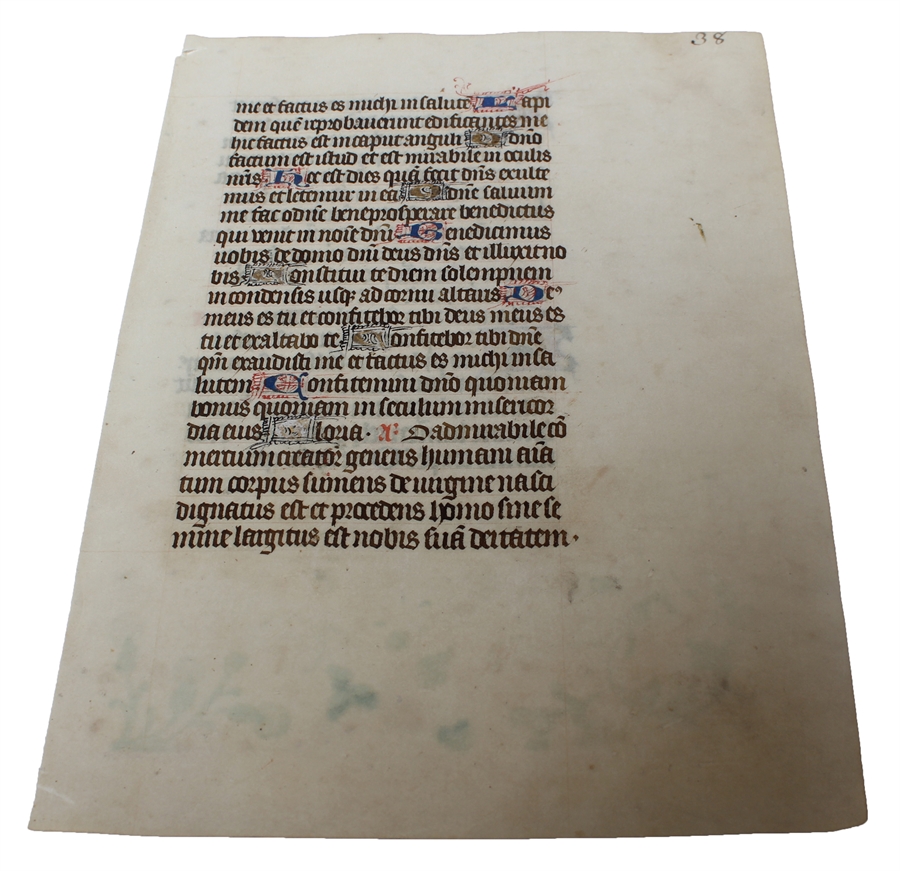 38
me et factus es michi in salute Lapi
dem quē reprobaverunt edificantes me
hic factus est in caput anguli A dn̄o
factum est istud et est mirabile in oculis
nr̄is Hec est dies quā fecit dn̄s exulte
mus et letemur in ea O dn̄e salvum
me fac o dn̄e bene prosperare benedictus
qui venit in noīe dn̄i Benedicimus
vobis de domo dn̄i deus dn̄s et illuxit no
bis Constitui te diem solempnem
in condensis usq̄ ad cornu altaris De⁹
meus es tu et confitebor tibi deus meus es
tu et exaltabo te Confitebor tibi dn̄e
qm̄ exaudisti me et factus es michi in sa
lutem Confitemini dn̄o quoniam
bonus quoniam in seculum misericor
dia eius Gloria. O admirabile cō
mercium creator generis humani aīa
tum corpus sumens de virgine nasci
dignatus est et procedens homo sine se
mine largitus est nobis suā deitatem.